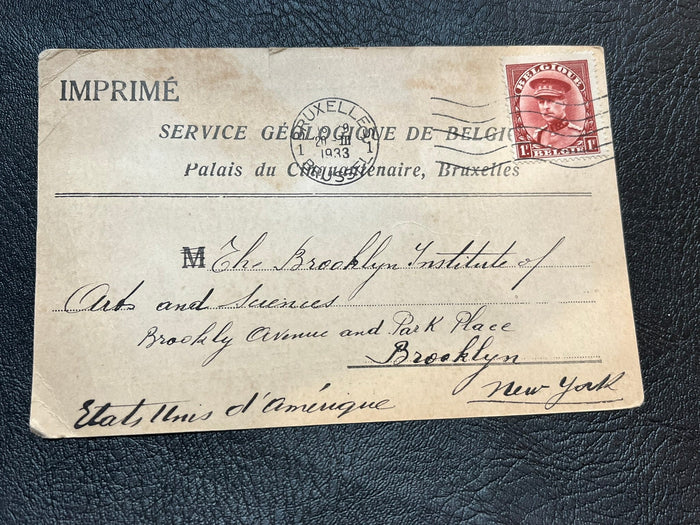 IMPRIMÉ
BELGIQUE
1F 1F
BELGIË
BRUXELLES
1 1
III
1933
BRUSSEL
SERVICE GÉOLOGIQUE DE BELGIQ
Palais du Cinquantenaire, Bruxelles
M The Brooklyn Institute of
Arts and Sciences
Brookly Avenue and Park Place
Brooklyn
New York
Etats Unis d'Amérique